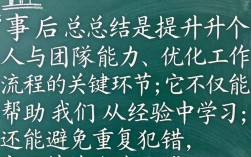 事后总总结是提升升个
人与团隊能力、优化工作
流程的关键环节；它不仅能
帮助我们从经验中学习；
还能避免重复犯错，